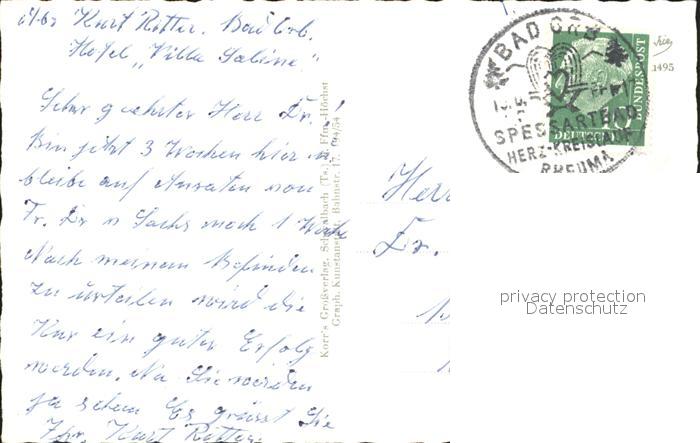 Kurt Ritter. Bad Orb.
Hotel „Villa Sabine"
Sehr geehrter Herr Dr.!
Bin jetzt 3 Wochen hier u.
bleibe auf Anraten von
Fr. Dr Sachs noch 1 Woche
Nach meinem Befinden
zu urteilen wird die
Kur ein guter Erfolg
werden. Na Sie werden
ja sehen Es grüsst Sie
Ihr Kurt Ritter
Korr's Großverlag, Schwalbach (Ts.)
Graph. Kunstanstalt, Bahnstr. 17. 94/54
Herr
Dr.
BAD ORB
SPESSARTBAD
HERZ-KREISLAUF
RHEUMA
DEUTSCHE
BUNDESPOST
1495
privacy protection
Datenschutz